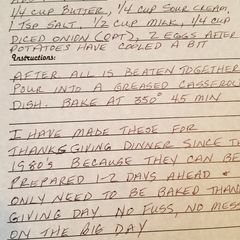 1/4 CUP BUTTER, 1/4 CUP SOUR CREAM,
1 TSP SALT, 1/2 CUP MILK, 1/4 CUP
DICED ONION (OPT), 2 EGGS AFTER
POTATOES HAVE COOLED A BIT
Instructions:
AFTER ALL IS BEATEN TOGETHER
POUR INTO A GREASED CASSEROL
DISH. BAKE AT 350° 45 MIN
I HAVE MADE THESE FOR
THANKSGIVING DINNER SINCE TH
1980'S BECAUSE THEY CAN BE
PREPARED 1-2 DAYS AHEAD &
ONLY NEED TO BE BAKED THAN
GIVING DAY NO FUSS, NO MES
ON THE BIG DAY